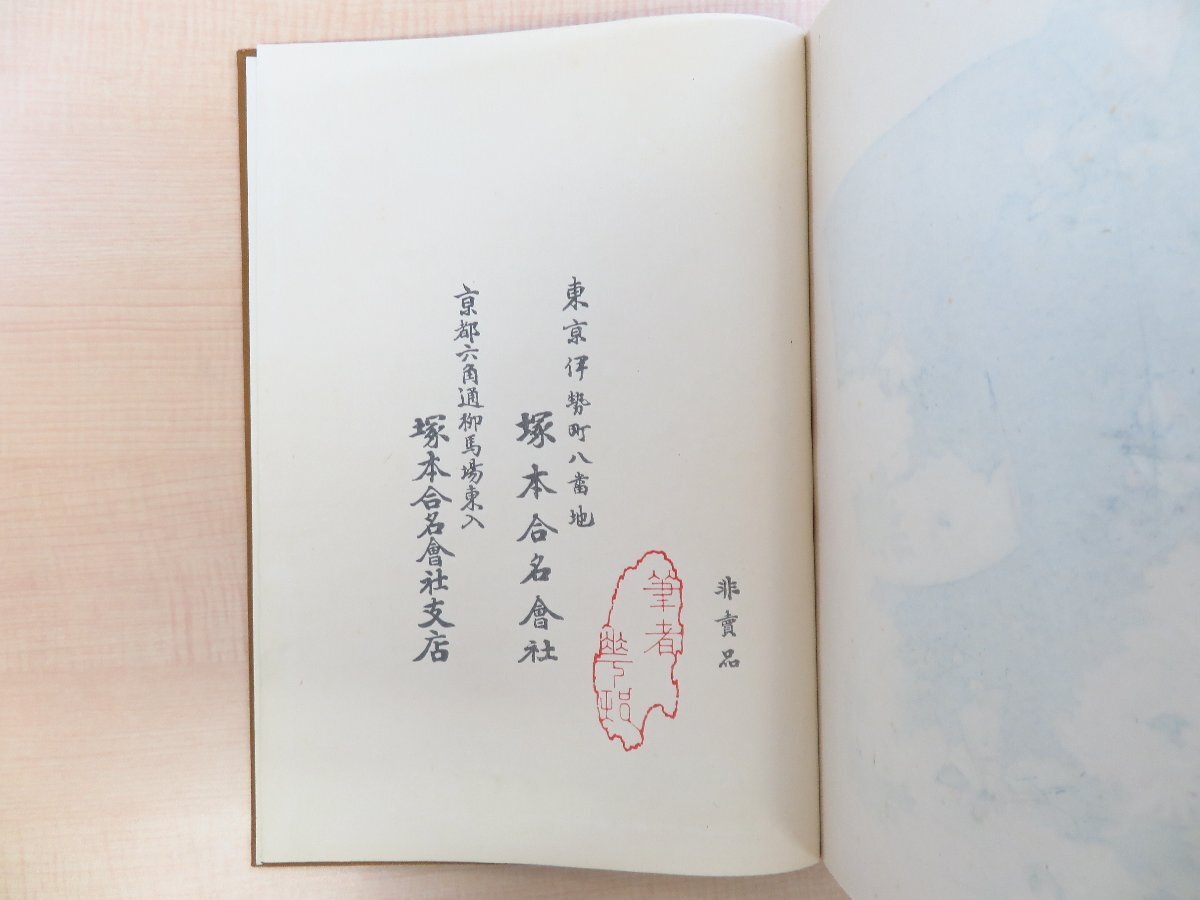 非賣品
筆者
東京伊勢町八番地
塚本合名會社
京都六角通柳馬場東入
塚本合名會社支店